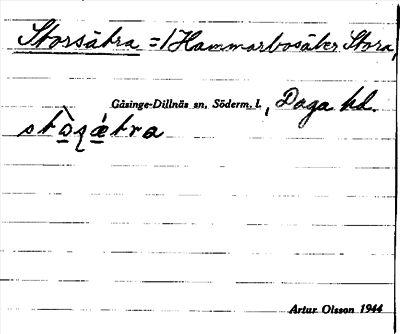 Storsätra = 1 Hammarbosäter Stora,
Gåsinge-Dillnäs sn, Söderm. l., Daga hd.
Artur Olsson 1944